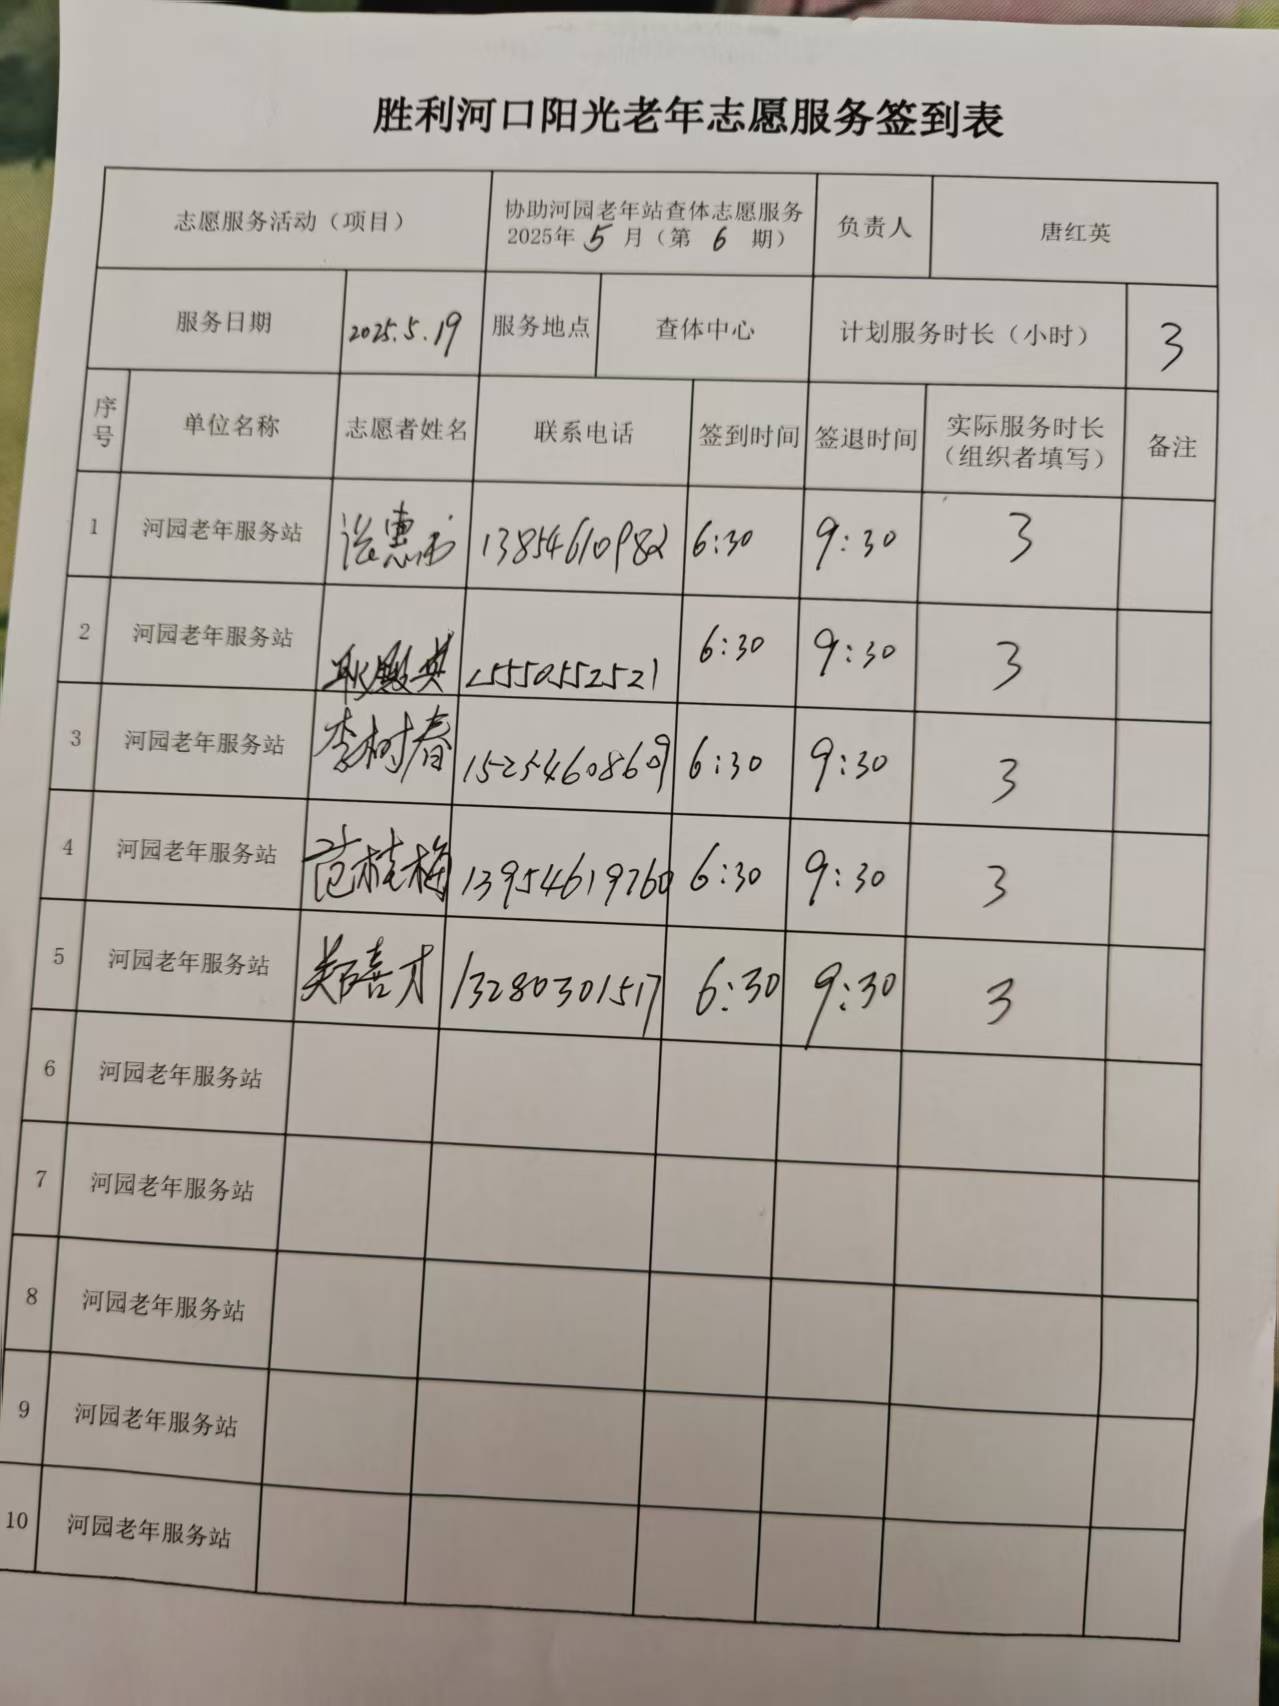 胜利河口阳光老年志愿服务签到表
志愿服务活动（项目） 协助河园老年站查体志愿服务 2025年5月（第6期） 负责人 唐红英
服务日期 2025.5.19 服务地点 查体中心 计划服务时长（小时） 3
序号 单位名称 志愿者姓名 联系电话 签到时间 签退时间 实际服务时长（组织者填写） 备注
1 河园老年服务站 13854610982 6:30 9:30 3
2 河园老年服务站 耿殿英 15550552521 6:30 9:30 3
3 河园老年服务站 李树春 15254608609 6:30 9:30 3
4 河园老年服务站 范桂梅 13954619760 6:30 9:30 3
5 河园老年服务站 喜才 13280301517 6:30 9:30 3
6 河园老年服务站
7 河园老年服务站
8 河园老年服务站
9 河园老年服务站
10 河园老年服务站